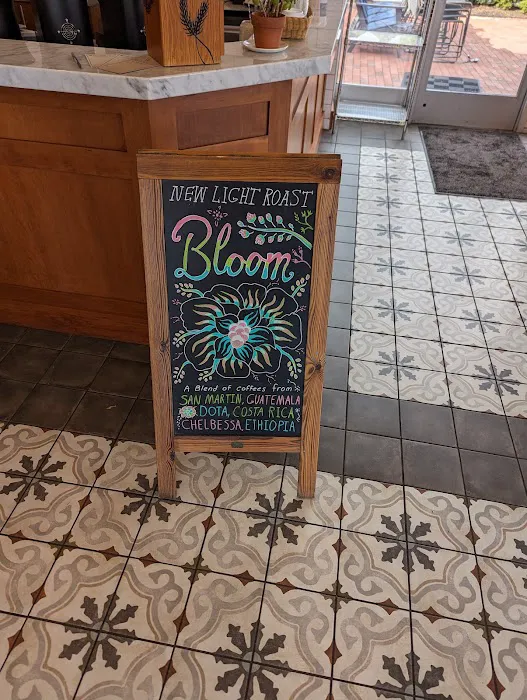 NEW LIGHT ROAST
Bloom
A Blend of coffees from
SAN MARTIN, GUATEMALA
DOTA, COSTA RICA
CHELBESSA, ETHIOPIA